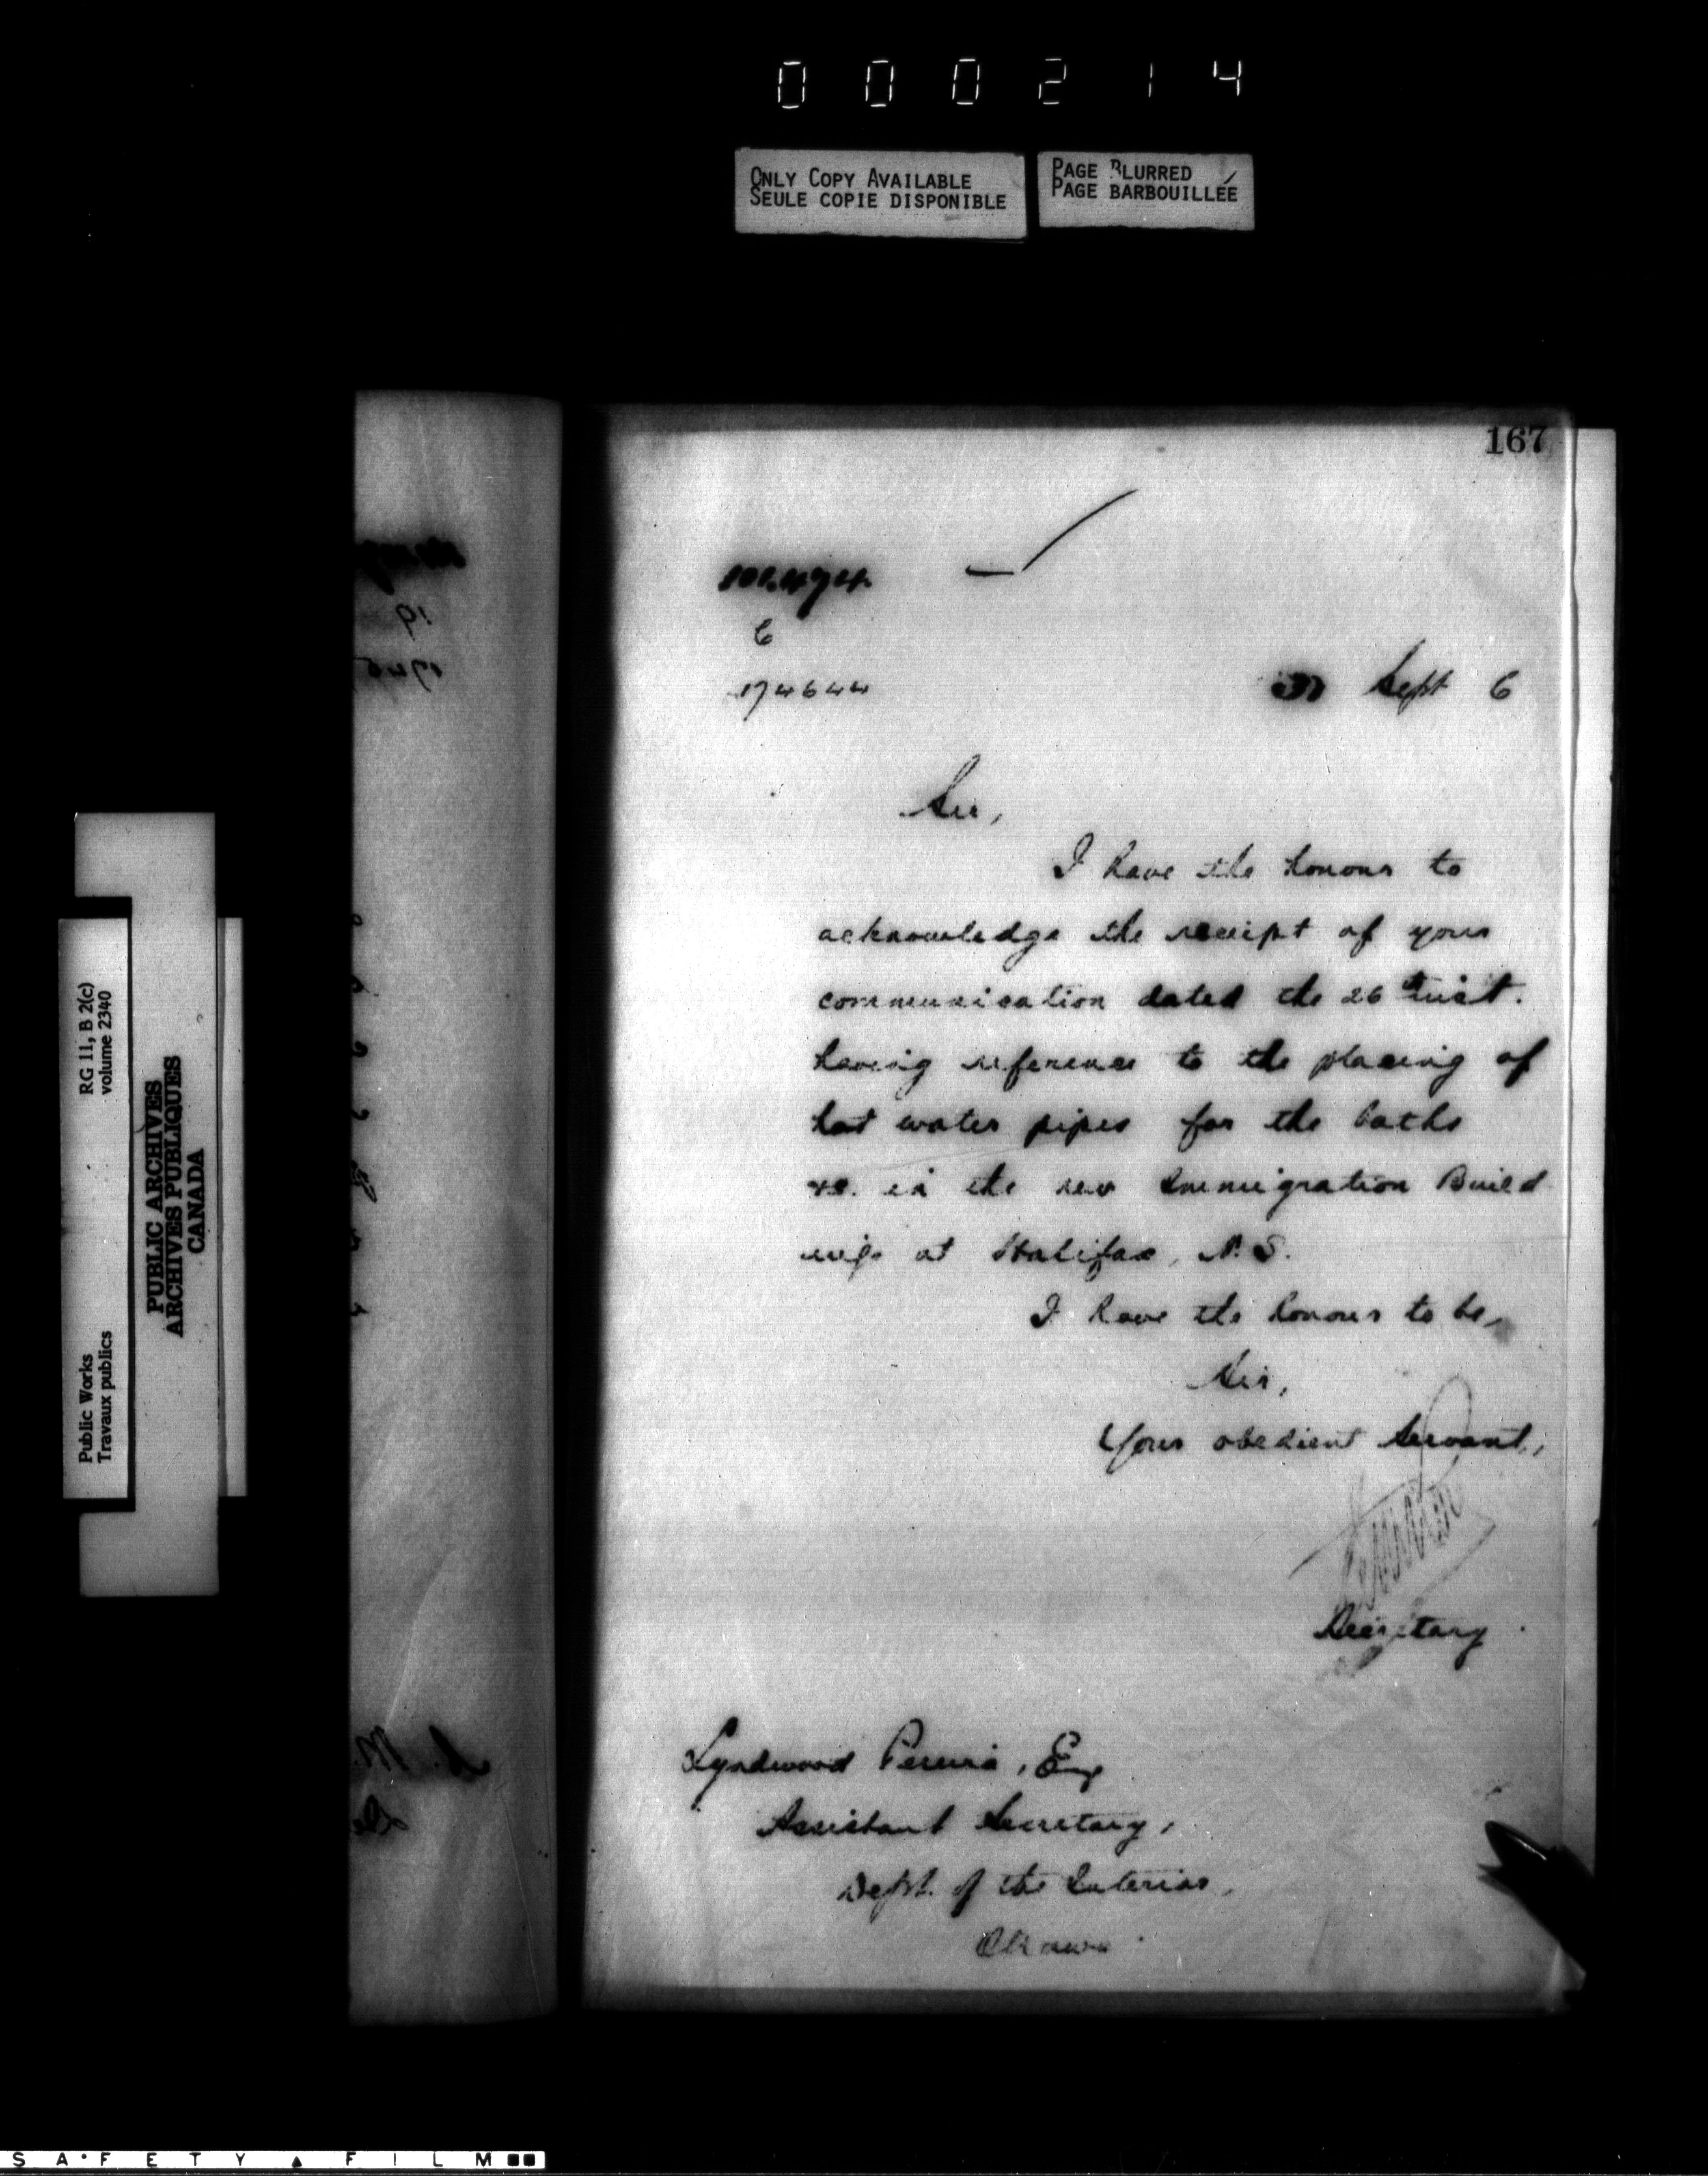 000214
ONLY COPY AVAILABLE
SEULE COPIE DISPONIBLE
PAGE BLURRED
PAGE BARBOUILLÉE
167
101.474
6
174644
Sept 6
Sir,
I have the honour to
acknowledge the receipt of your
communication dated the 26th inst.
having reference to the placing of
hot water pipes for the baths
&c. in the new Immigration Build
ings at Halifax, N.S.
I have the honour to be,
Sir,
Your obedient Servant,
Secretary
Lyndwood Pereira, Esq
Assistant Secretary,
Dept. of the Interior,
Ottawa
RG 11, B 2(c)
volume 2340
Public Works
Travaux publics
PUBLIC ARCHIVES
ARCHIVES PUBLIQUES
CANADA
SAFETY FILM